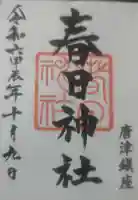 唐津鎮座
春日神社
令和六甲辰年十月九日